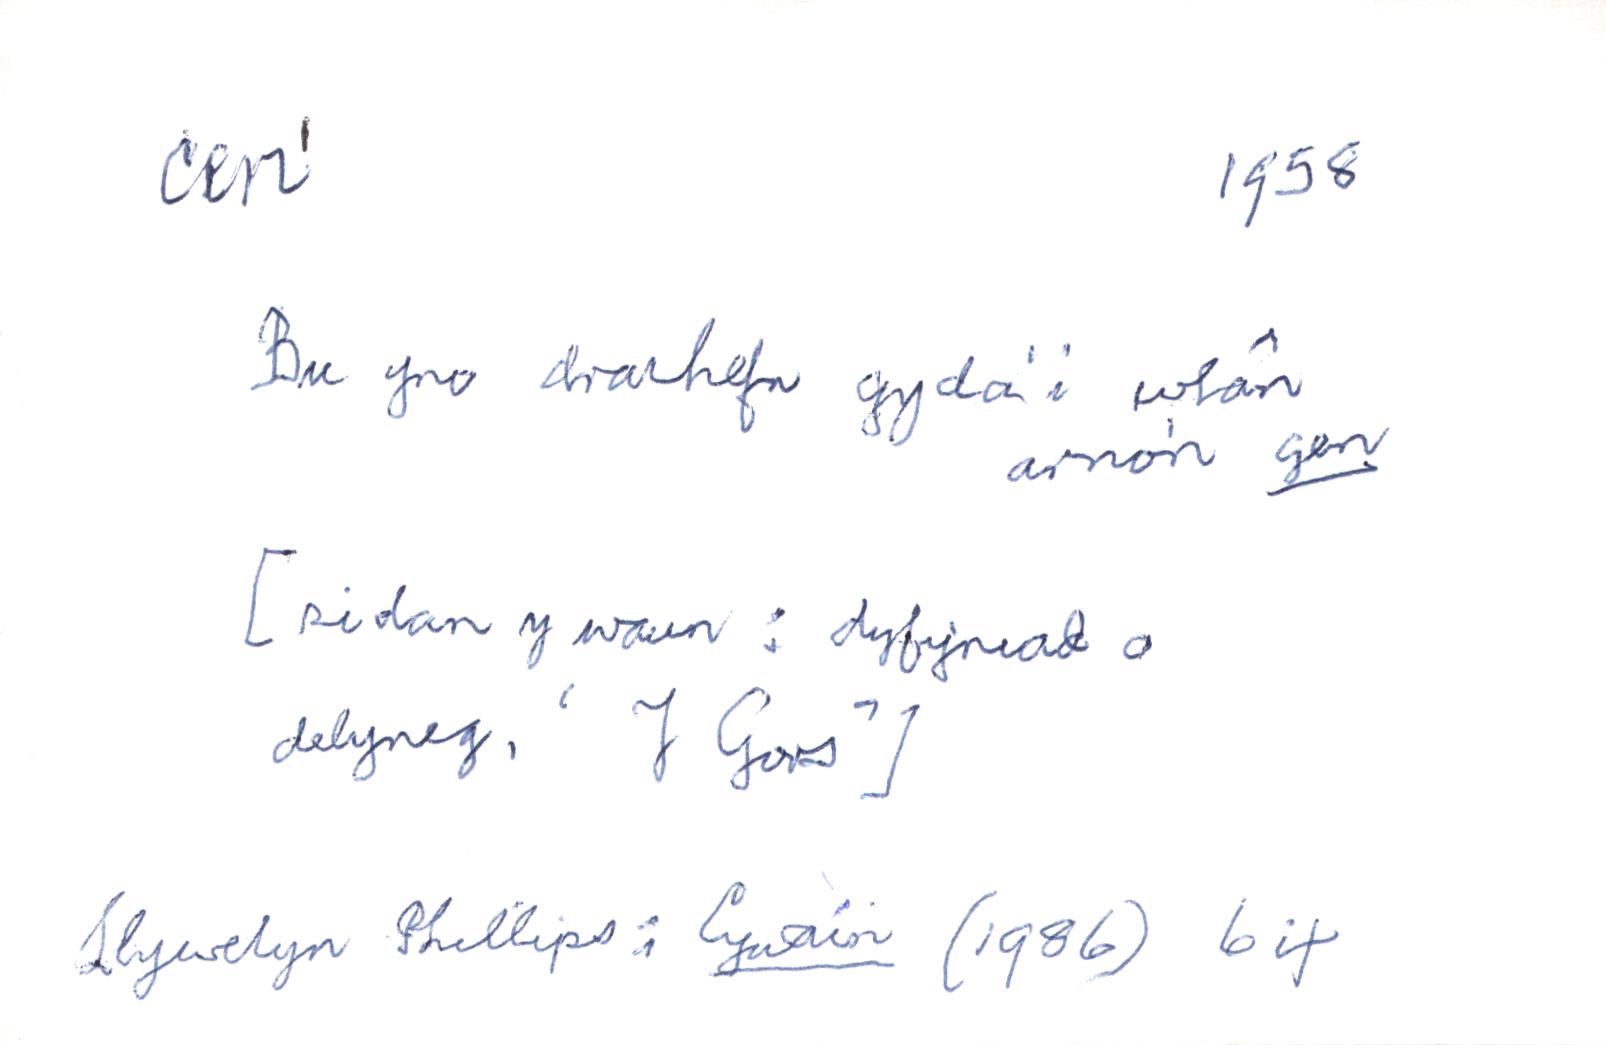 cen¹ 1958
Bu yno drachefn gyda'i wlân
arno'n gen
[sidan y waun : dyfyniad o
delyneg, 'Y Gors']
Llywelyn Phillips : Cywain (1986) b ix